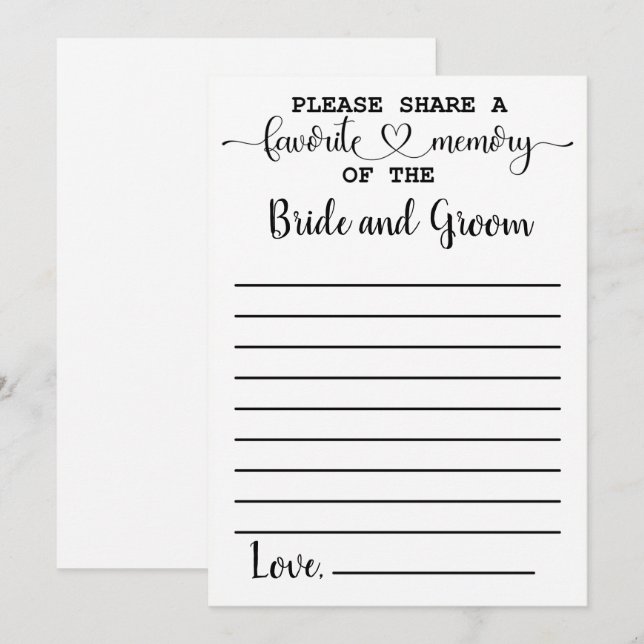 PLEASE SHARE A
favorite memory
OF THE
Bride and Groom
Love,